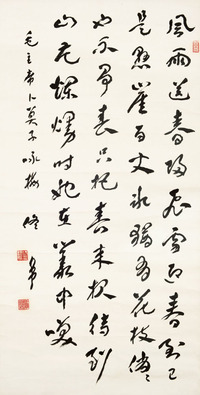 風雨送春歸飛雪迎春到已
是懸崖百丈冰猶有花枝俏々
也不爭春只把春來報待到
山花爛熳時她在叢中笑
毛主席卜算子咏梅